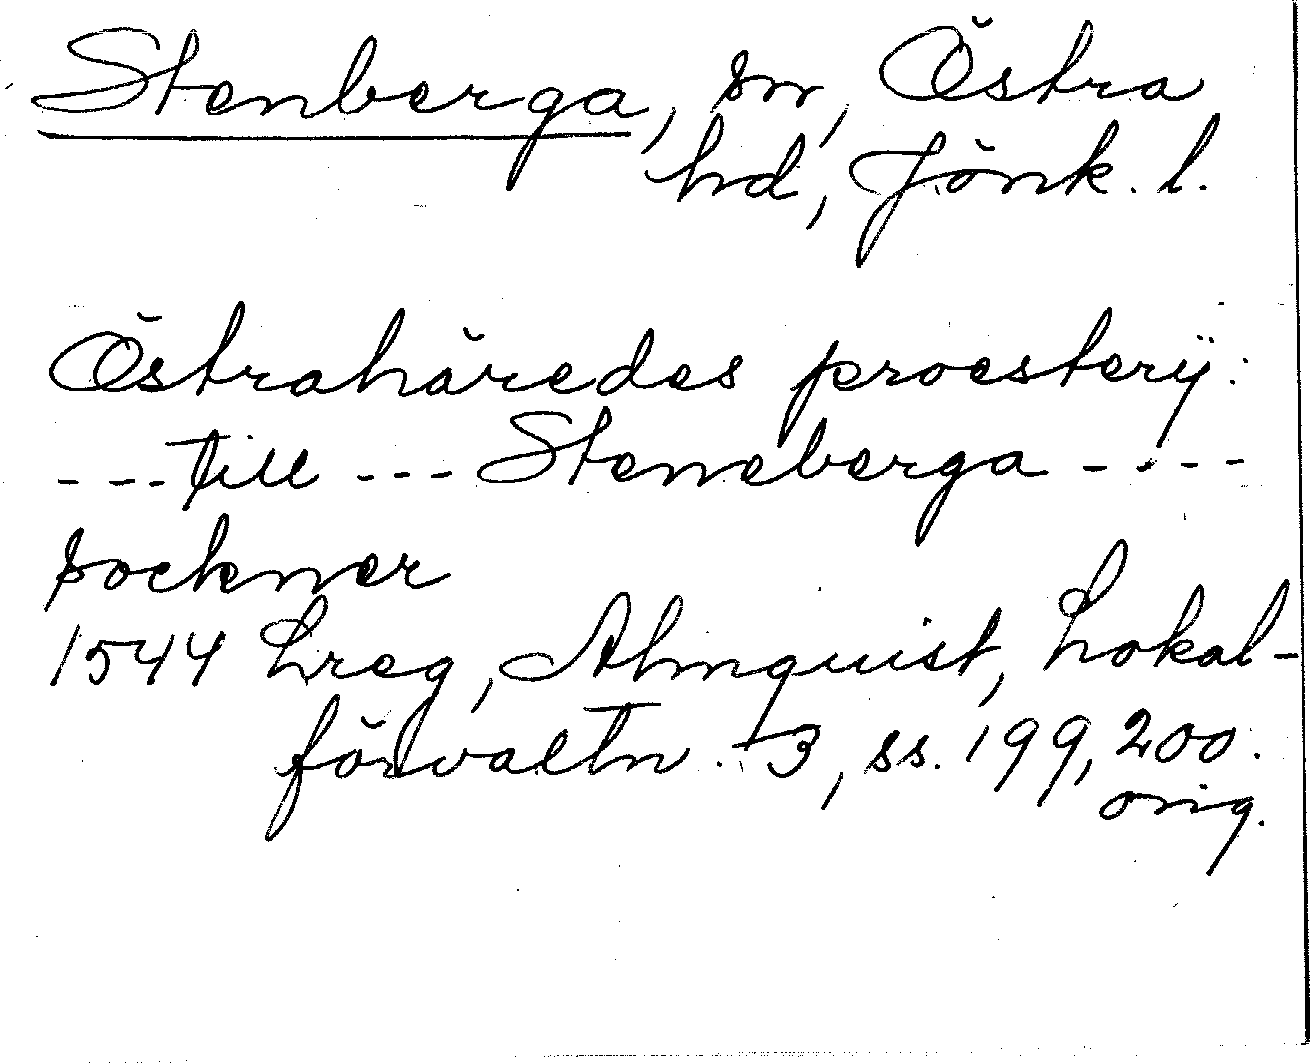 Stenberga, sn, Östra
hd, Jönk. l.
Östrahäredes proesterÿ:
- - - till - - - Steneberga - - - -
sockner
1544 Lreg, Almquist, Lokal-
förvaltn. 3, ss. 199, 200.
orig.